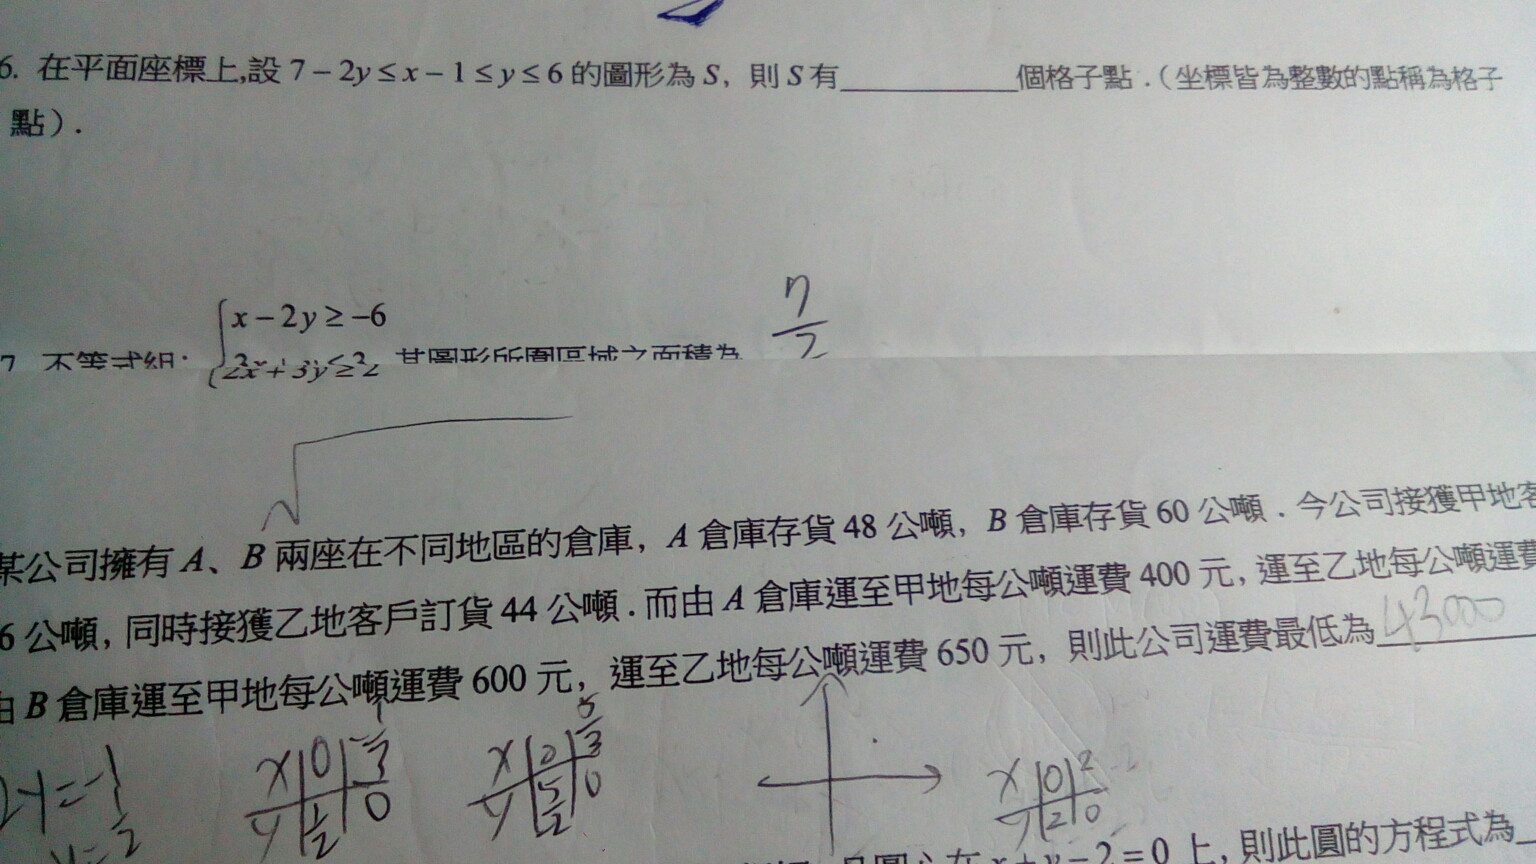 6. 在平面座標上,設 7 − 2y ≤ x − 1 ≤ y ≤ 6 的圖形為 S, 則 S 有________個格子點 .（坐標皆為整數的點稱為格子
點）.
x − 2y ≥ −6
7
2
7 不等式組: 其圖形所圍區域之面積為
某公司擁有 A、B 兩座在不同地區的倉庫, A 倉庫存貨 48 公噸, B 倉庫存貨 60 公噸 . 今公司接獲甲地客
6 公噸, 同時接獲乙地客戶訂貨 44 公噸 . 而由 A 倉庫運至甲地每公噸運費 400 元, 運至乙地每公噸運費
由 B 倉庫運至甲地每公噸運費 600 元, 運至乙地每公噸運費 650 元, 則此公司運費最低為 43000
x 0
y 1/2 0
x 0 5/3
y 5/2 0
x 0 2
y 2 0
x + y − 2 = 0 上, 則此圓的方程式為